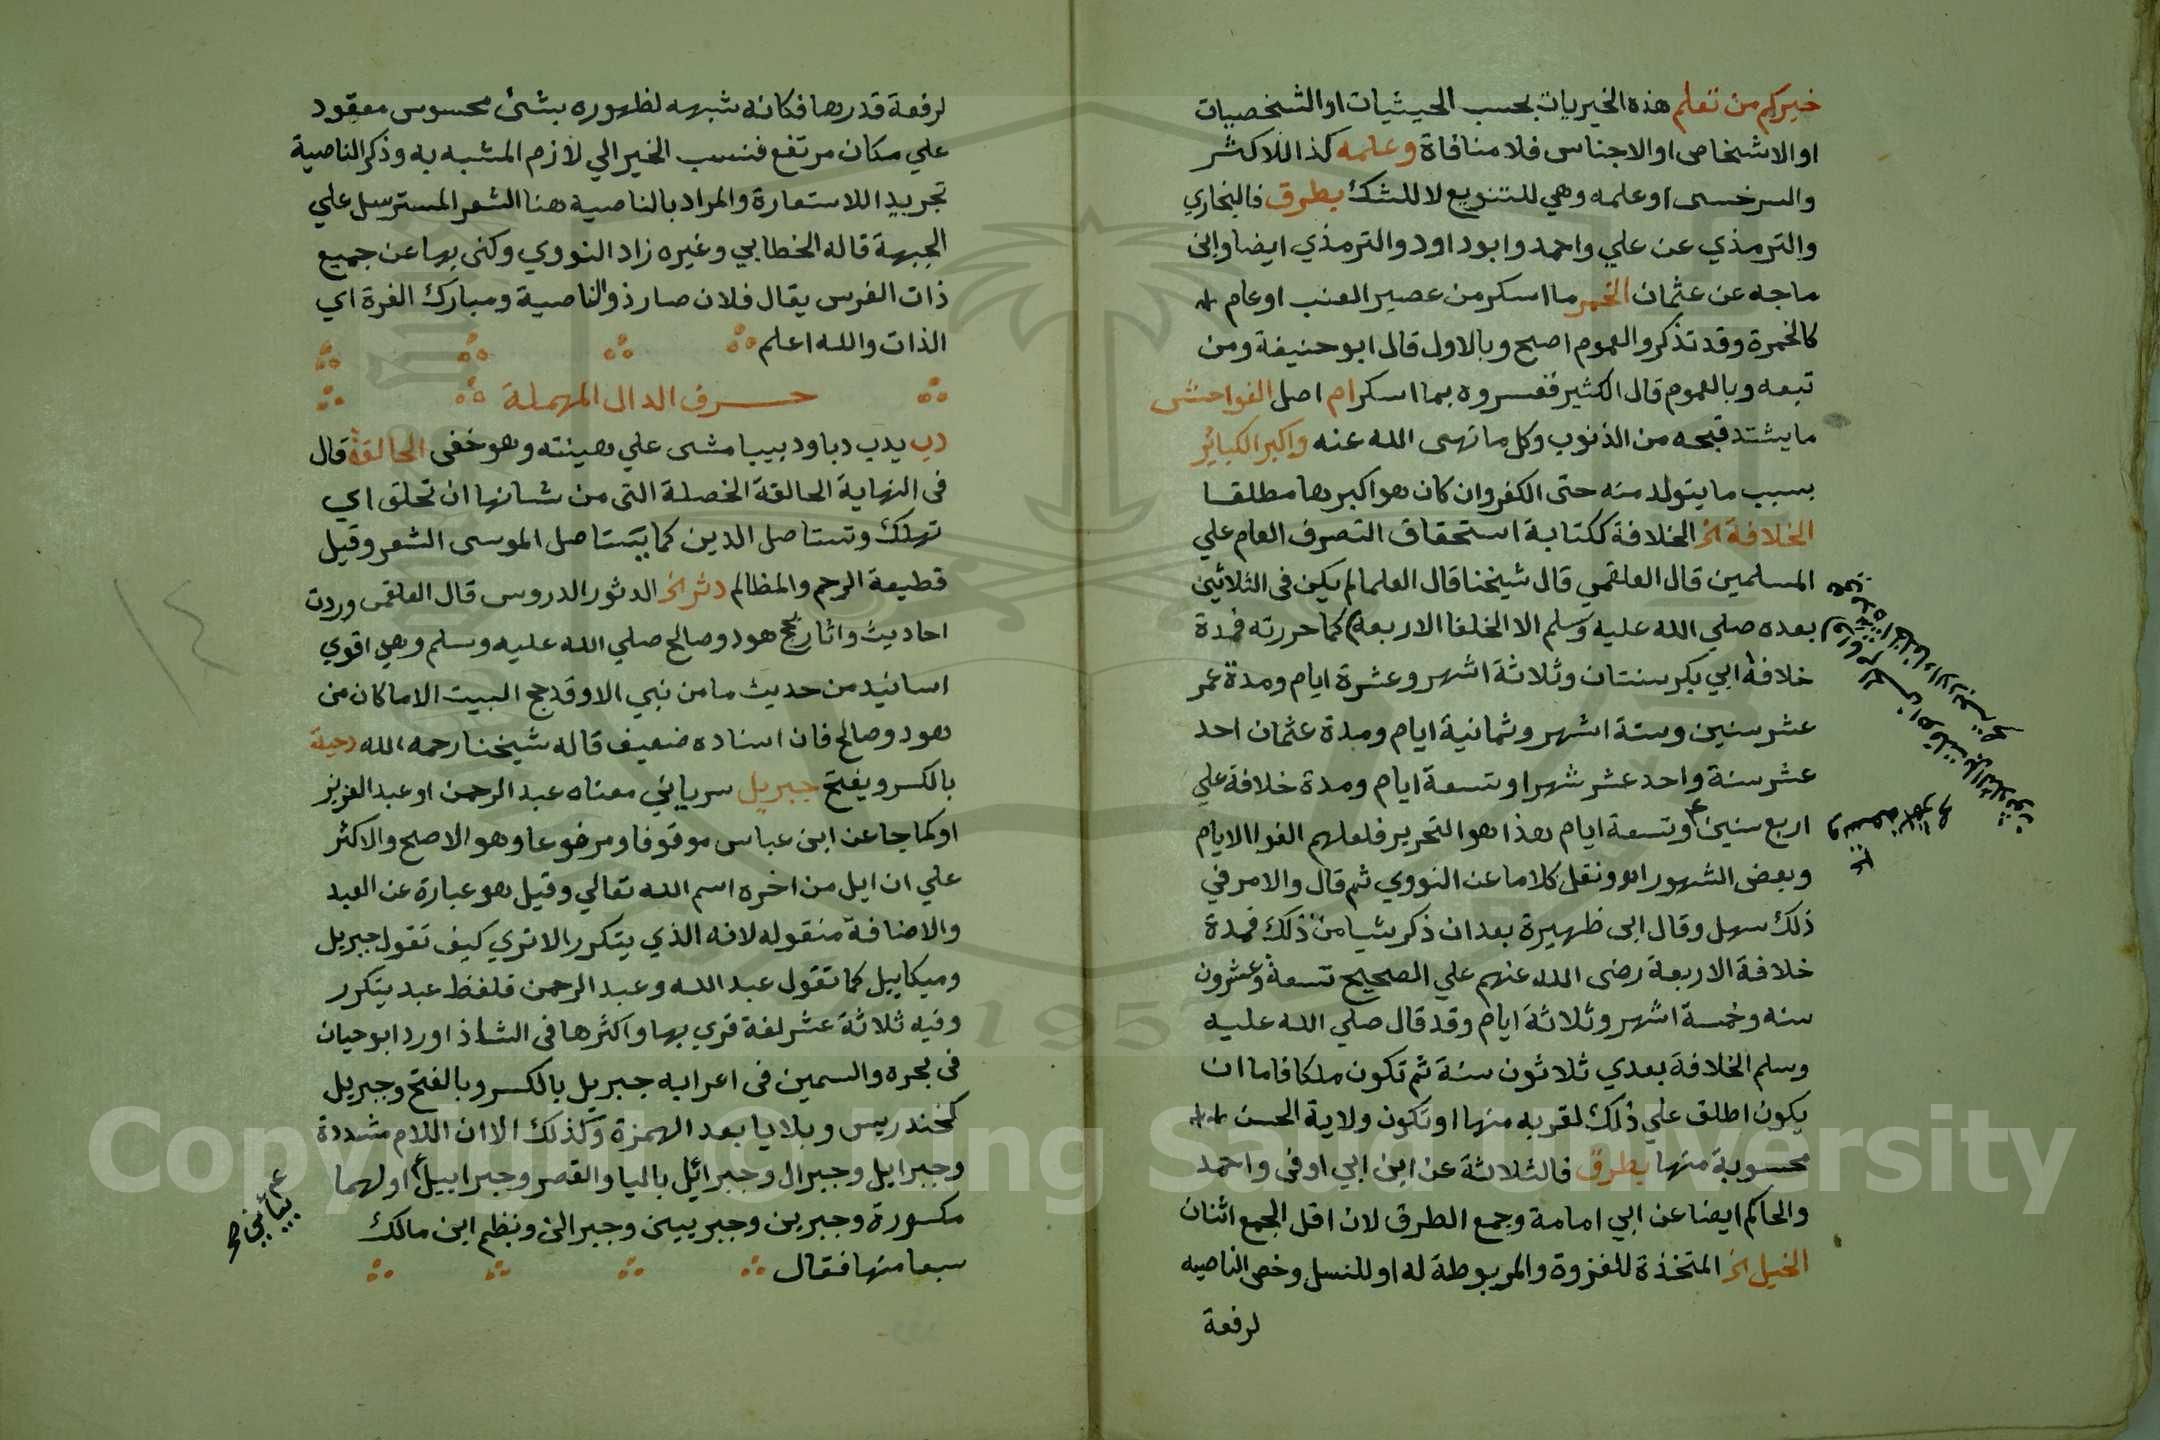 خيركم من تعلم هذه الخيريات بحسب الحيثيات او الشخصيات
او الاشخاص او الاجناس فلا منافاة وعلمه كذا للاكثر
والسرخسى او علمه وهي للتنويع لا للشك بطرق فالبخاري
والترمذي عن علي واحمد وابو داود والترمذي ايضا وابن
ماجه عن عثمان الخمر ما اسكر من عصير العنب او عام
كالخمرة وقد تذكر والعموم اصح وبالاول قال ابو حنيفة ومن
تبعه وبالعموم قال الكثير ففسروه بما اسكر ام اصل الفواحش
ما يشتد قبحه من الذنوب وكل ما نهى الله عنه واكبر الكبائر
بسبب ما يتولد منه حتى الكفر وان كان هو اكبرها مطلقا
الخلافة الخ الخلافة ككتابة استحقاق التصرف العام علي
المسلمين قال العلقمي قال شيخنا قال العلما لم يكن فى الثلاثين
بعده صلي الله عليه وسلم الا الخلفا الاربعة كما حررته فمدة
خلافة ابي بكر سنتان وثلاثة اشهر وعشرة ايام ومدة عمر
عشر سنين وستة اشهر وثمانية ايام ومدة عثمان احد
عشر سنة واحد عشر شهرا وتسعة ايام ومدة خلافة علي
اربع سنين وتسعة ايام هذا هو التحرير فلعلهم الغوا الايام
وبعض الشهور اه ونقل كلاما عن النووي ثم قال والامر في
ذلك سهل وقال ابن ظهيرة بعد ان ذكر شيا من ذلك فمدة
خلافة الاربعة رضى الله عنهم علي الصحيح تسعة وعشرون
سنه وخمسة اشهر وثلاثة ايام وقد قال صلي الله عليه
وسلم الخلافة بعدي ثلاثون سنة ثم تكون ملكا فاما ان
يكون اطلق علي ذلك لقربه منها او تكون ولاية الحسن
محسوبة منها بطرق فالثلاثة عن ابن ابي اوفى واحمد
والحاكم ايضا عن ابي امامة وجمع الطرق لان اقل الجمع اثنان
الخيل الخ المتخذة للغزوة والمربوطة له او للنسل وخص الناصيه
لرفعة
لرفعة قدرها فكانه شبهه لظهوره بشئ محسوس معقود
علي مكان مرتفع فنسب الخير الي لازم المشبه به وذكر الناصية
تجريدا للاستعارة والمراد بالناصية هنا الشعر المسترسل علي
الجبهة قاله الخطابي وغيره زاد النووي وكنى بها عن جميع
ذات الفرس يقال فلان صار ذو الناصية ومبارك الغرة اي
الذات والله اعلم
حرف الدال المهملة
دب يدب دبا ودبيبا مشى علي هينته وهو خفى الحالقة قال
فى النهاية الحالقة الخصلة التى من شانها ان تحلق اي
تهلك وتستاصل الدين كما يتستاصل الموسى الشعر وقيل
قطيعة الرحم والمظالم دثر الخ الدثور الدروس قال العلقمى وردت
احاديث واثار بحج هود وصالح صلي الله عليه وسلم وهي اقوي
اسانيد من حديث ما من نبي الا وقد حج البيت الا ما كان من
هود وصالح فان اسناده ضعيف قاله شيخنا رحمه الله دحية
بالكسر ويفتح جبريل سرياني معناه عبد الرحمن او عبد العزيز
او كما جا عن ابن عباس موقوفا ومرفوعا وهو الاصح والاكثر
علي ان ايل من اخره اسم الله تعالي وقيل هو عبارة عن العبد
والاضافة منقوله لانه الذي يتكرر الا تري كيف تقول جبريل
وميكاييل كما تقول عبد الله وعبد الرحمن فلفظ عبد يتكرر
وفيه ثلاثة عشر لغة قري بها واكثرها فى الشاذ اورد ابو حيان
فى بحره والسمين فى اعرابه جبريل بالكسر وبالفتح وجبريل
كخندريس وبلا يا بعد الهمزة وكذلك الا ان اللام مشددة
وجبرايل وجبرال وجبرائل باليا والقصر وجبراييل اولهما
مكسورة وجبرين وجبريين وجبراين ونظم ابن مالك
سبعا منها فقال
Copyright © King Saud University
195